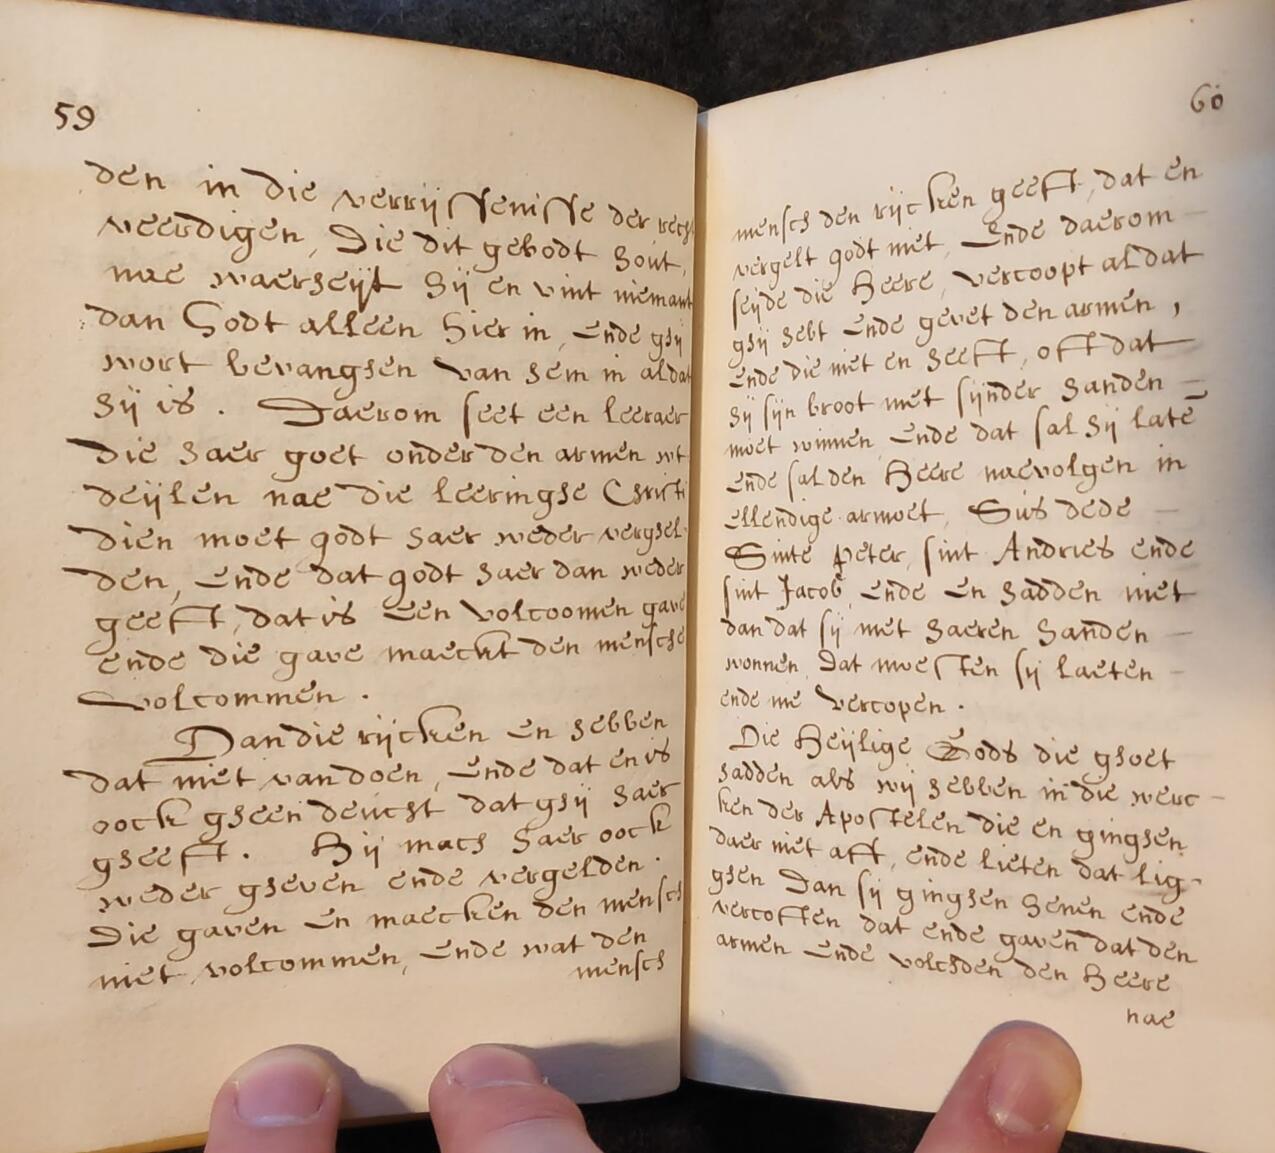 59
den in die verrijssenisse der recht
veerdigen, Die dit gebodt hout,
nae waerheijt hij en vint niemant
dan Godt alleen hier in, ende ghij
wort bevanghen van hem in al dat
hij is. Daerom seet een leeraer
die haer goet onder den armen wt
deijlen nae die leeringhe Christi
dien moet godt haer weder verghel
den, ende dat godt haer dan weder
geeft, dat is een volcoomen gave
ende die gave maeckt den mensche
volcommen.
Dan die rijcken en hebben
dat niet van doen, ende dat en is
oock gheen deucht dat ghij haer
gheeft. Hij mach haer oock
weder gheven ende vergelden.
Die gaven en maecken den mensch
niet volcommen, ende wat den
mensch
60
mensch den rijcken geeft, dat en
vergelt godt niet, Ende daerom
seijde die Heere, vercoopt al dat
ghij hebt ende gevet den armen,
ende die niet en heeft, oft dat
hij sijn broot met sijnder handen
moet winnen, ende dat sal hij latē
ende sal den Heere naevolgen in
ellendige armoet, Sus dede
Sinte peter, sint Andries ende
sint Jacob, ende en hadden niet
dan dat sij met haeren handen
wonnen, Dat moesten sij laeten
ende nie vercopen.
Die Heijlige Gods die ghoet
hadden als wij hebben in die werc
ken der Apostelen die en ginghen
daer niet aft, ende lieten dat lig-
ghen Dan sij ginghen henen ende
vercoften dat ende gaven dat den
armen ende volchden den Heere
nae